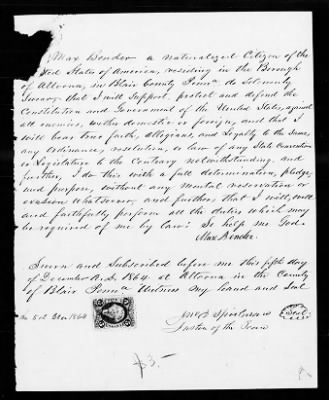 Max Bender a naturalized Citizen of the
ted States of America, residing in the Borough
of Altoona, in Blair County Penna. do Solemnly
Swear, that I will Support, protect and defend the
Constitution and Government of the United States, against
all enemies, whether domestic or foreign, and that I
will bear true faith, allegiance, and loyalty to the Same,
any Ordinance, resolution, or law of any State Convention
or Legislature to the Contrary notwithstanding. and
further, I do this with a full determination, pledge,
and purpose, without any mental reservation or
evasion whatsoever, and further, that I will, well
and faithfully perform all the duties which may
be required of me by law: So help me God.
Max Bender.
Sworn and Subscribed before me this fifth day
of December A.D. 1864. at Altoona in the County
of Blair Penna Witness my hand and Seal
5 1864
of the
Seal
$3.-